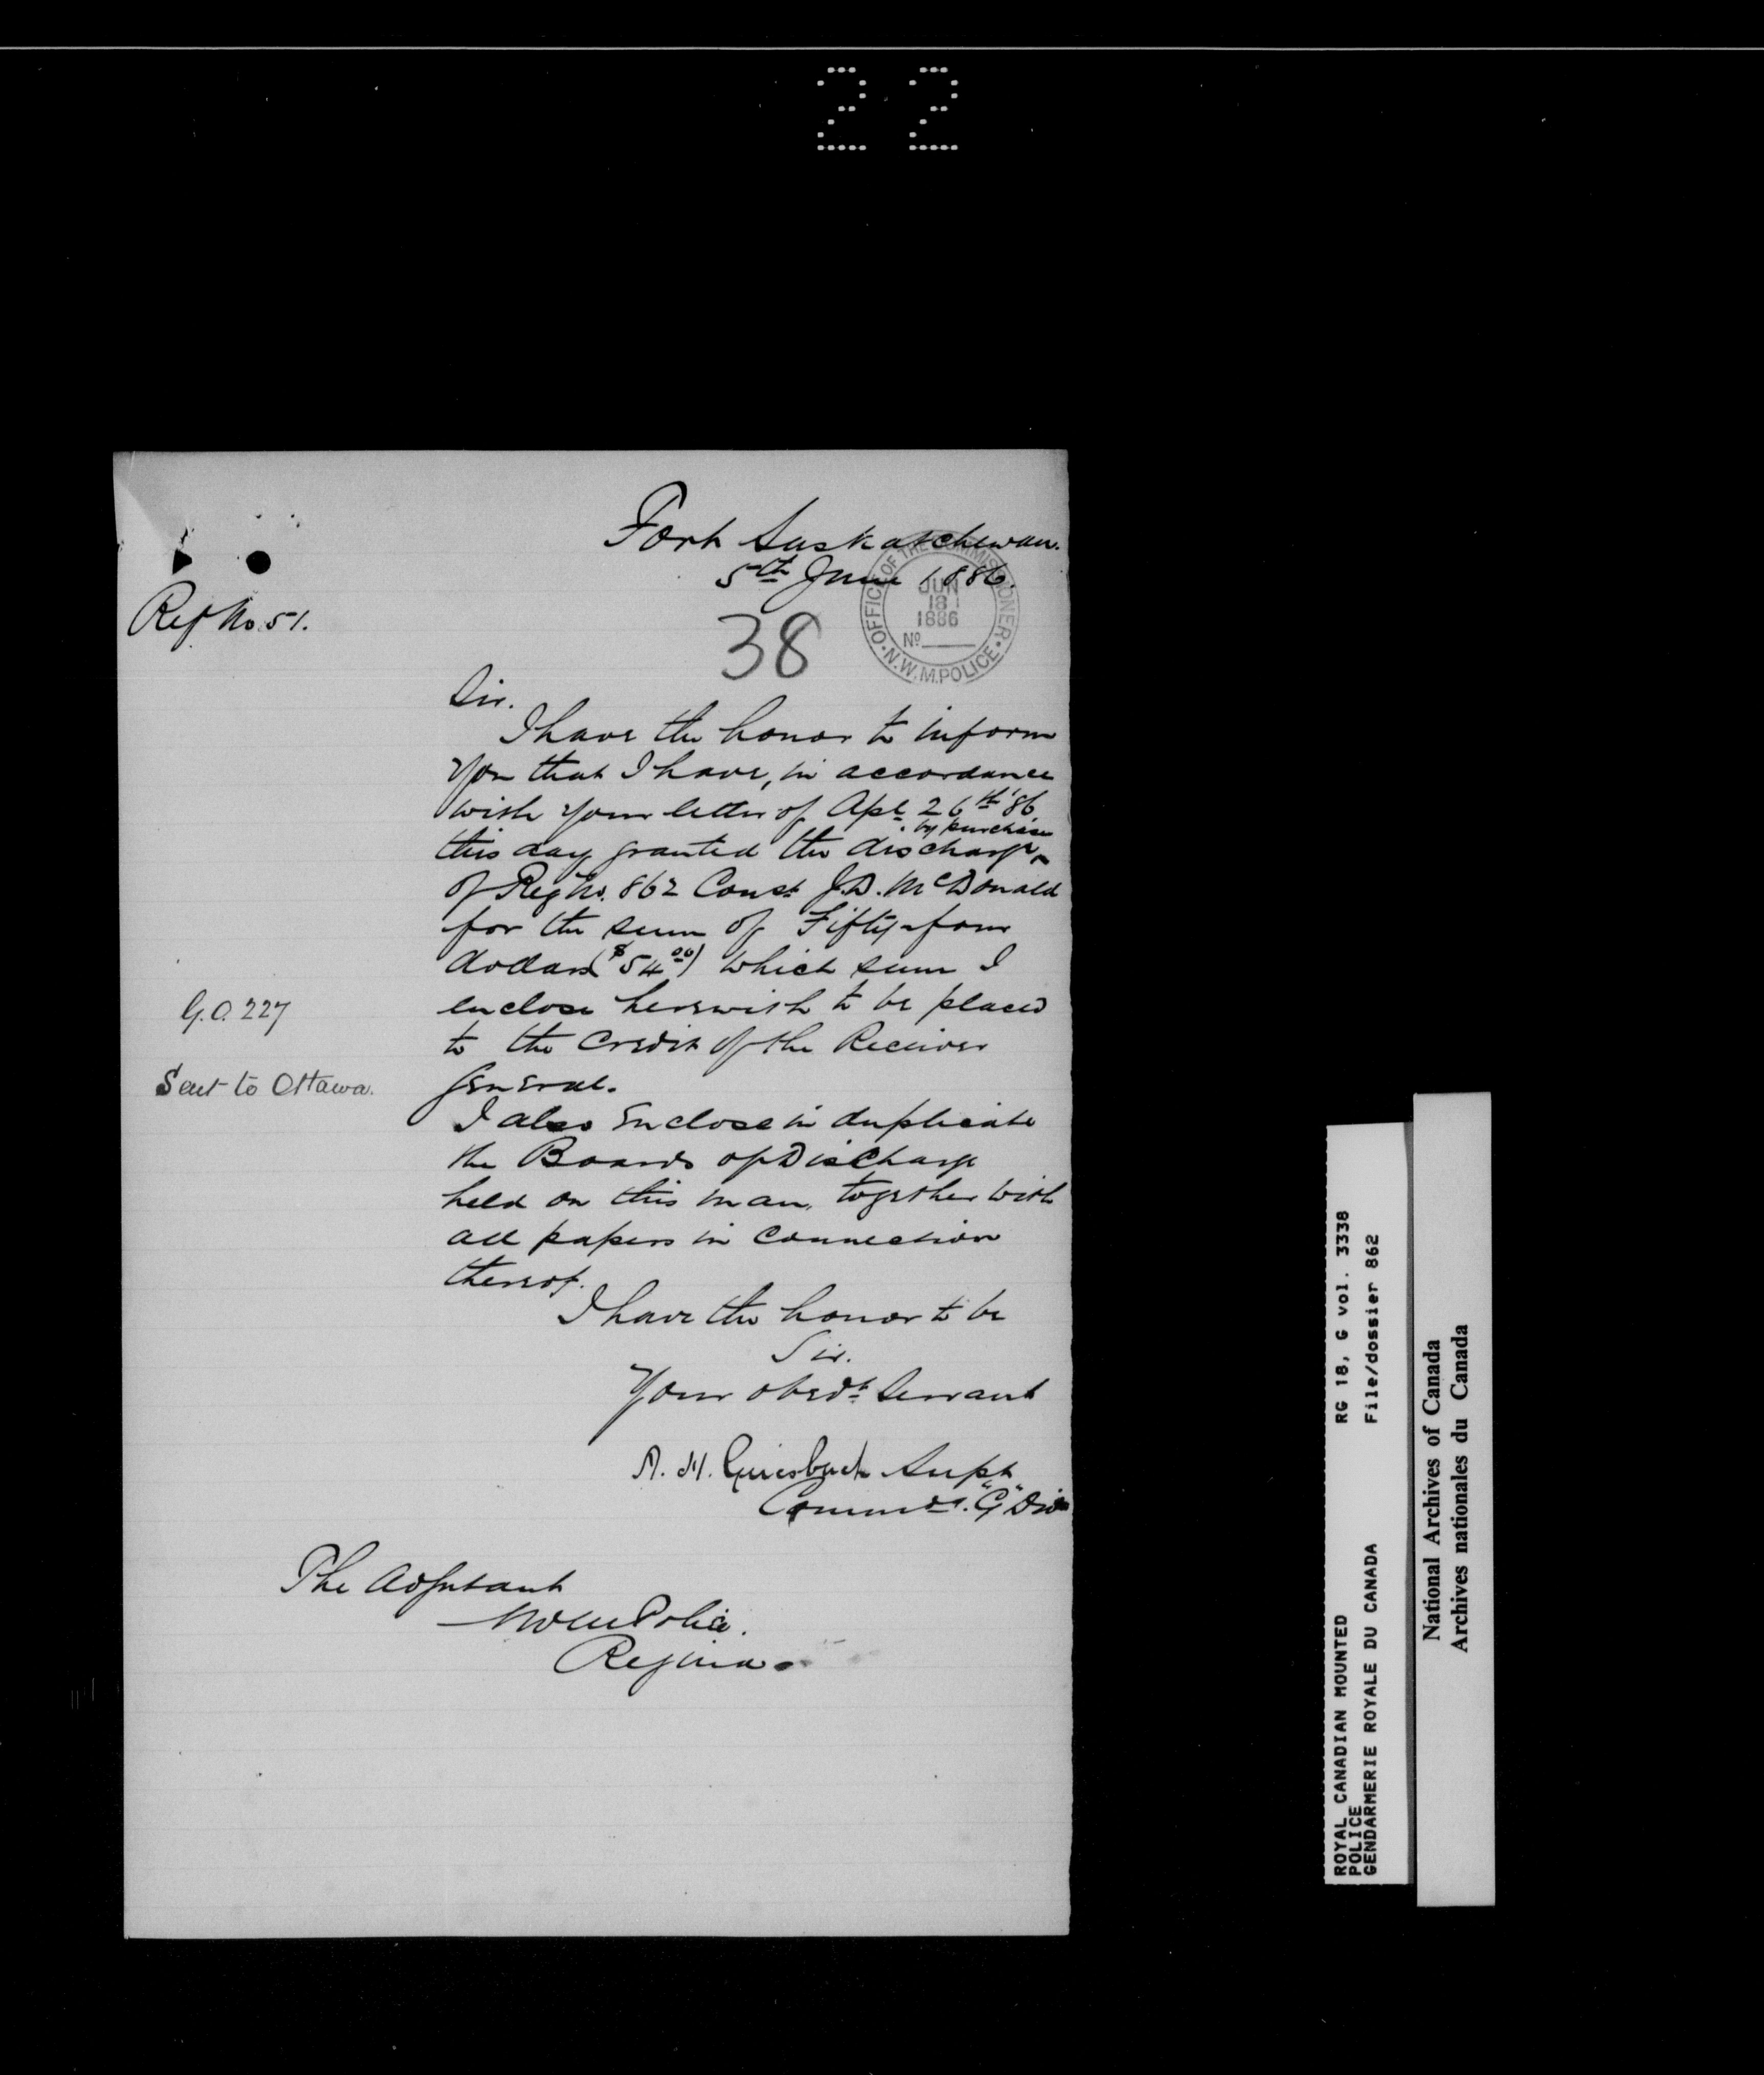 22
Fort Saskatchewan.
5th June 1886.
OFFICE OF THE COMMISSIONER
JUN
18
1886
No
N.W.M.POLICE
Ref No. 51.
38
Sir.
I have the honor to inform
you that I have, in accordance
with your letter of Apl. 26th '86
by purchase
this day granted the discharge
of Reg No. 862 Const J.D. McDonald
for the sum of Fifty-four
dollars ($54.00) which sum I
enclose herewith to be placed
to the Credit of the Receiver
General.
G.O. 227
Sent to Ottawa.
I also Enclose in duplicate
the Boards of Discharge
held on this man, together with
all papers in Connection
thereof.
I have the honor to be
Sir.
Your obedt Servant
A. H. Griesbach Supt
Commdg. "G" Divn
The Adjutant
N W M Police.
Regina.
ROYAL CANADIAN MOUNTED
POLICE
GENDARMERIE ROYALE DU CANADA
RG 18, G vol. 3338
File/dossier 862
National Archives of Canada
Archives nationales du Canada